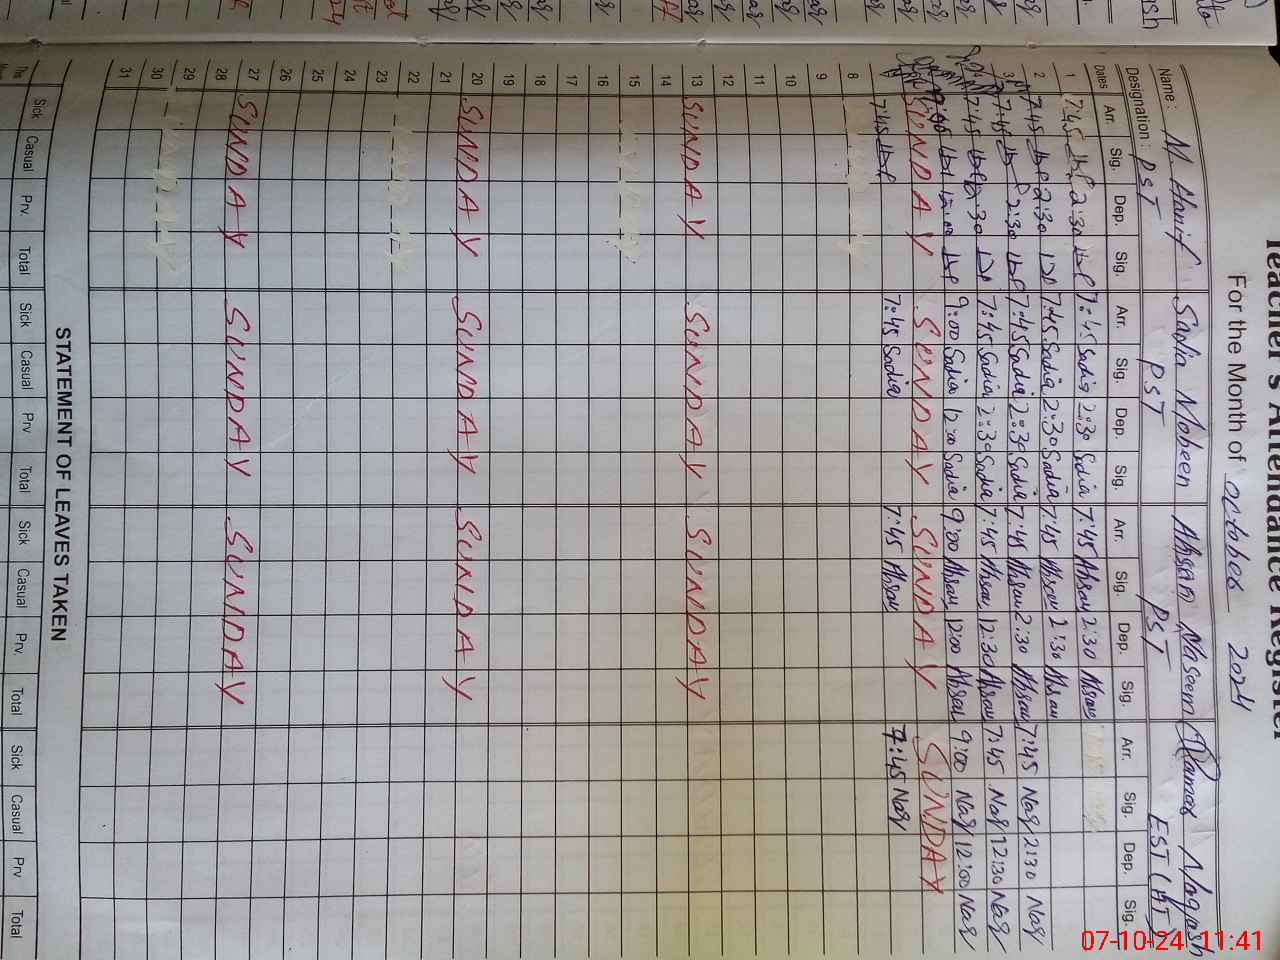 Teacher's Attendance Register
For the Month of October 2024
Name: M. Hanif Sadia Mobeen Ahsan Naseem Qamar Naqash
Designation: PST PST PST EST (
Dates Arr. Sig. Dep. Sig. Arr. Sig. Dep. Sig. Arr. Sig. Dep. Sig. Arr. Sig. Dep. Sig.
1 7:45 2:30 7:45 Sadia 2:30 Sadia 7:45 Ahsan 2:30 Ahsan
2 7:45 2:30 7:45 Sadia 2:30 Sadia 7:45 Ahsan 2:30 Ahsan
3 7:45 2:30 7:45 Sadia 2:30 Sadia 7:45 Ahsan 2:30 Ahsan 7:45 Naq 2:30 Naq
7:45 12:30 7:45 Sadia 2:30 Sadia 7:45 Ahsan 12:30 Ahsan 7:45 Naq 12:30 Naq
9:00 12:00 9:00 Sadia 12:00 Sadia 9:00 Ahsan 12:00 Ahsan 9:00 Naq 12:00 Naq
SUNDAY SUNDAY SUNDAY SUNDAY
7:45 7:45 Sadia 7:45 Ahsan 7:45 Naq
8
9
10
11
12
13 SUNDAY SUNDAY SUNDAY
14
15
16
17
18
19
20 SUNDAY SUNDAY SUNDAY
21
22
23
24
25
26
27 SUNDAY SUNDAY SUNDAY
28
29
30
31
STATEMENT OF LEAVES TAKEN
Sick Casual Prv. Total Sick Casual Prv Total Sick Casual Prv. Total Sick Casual Prv Total
07-10-24 11:41